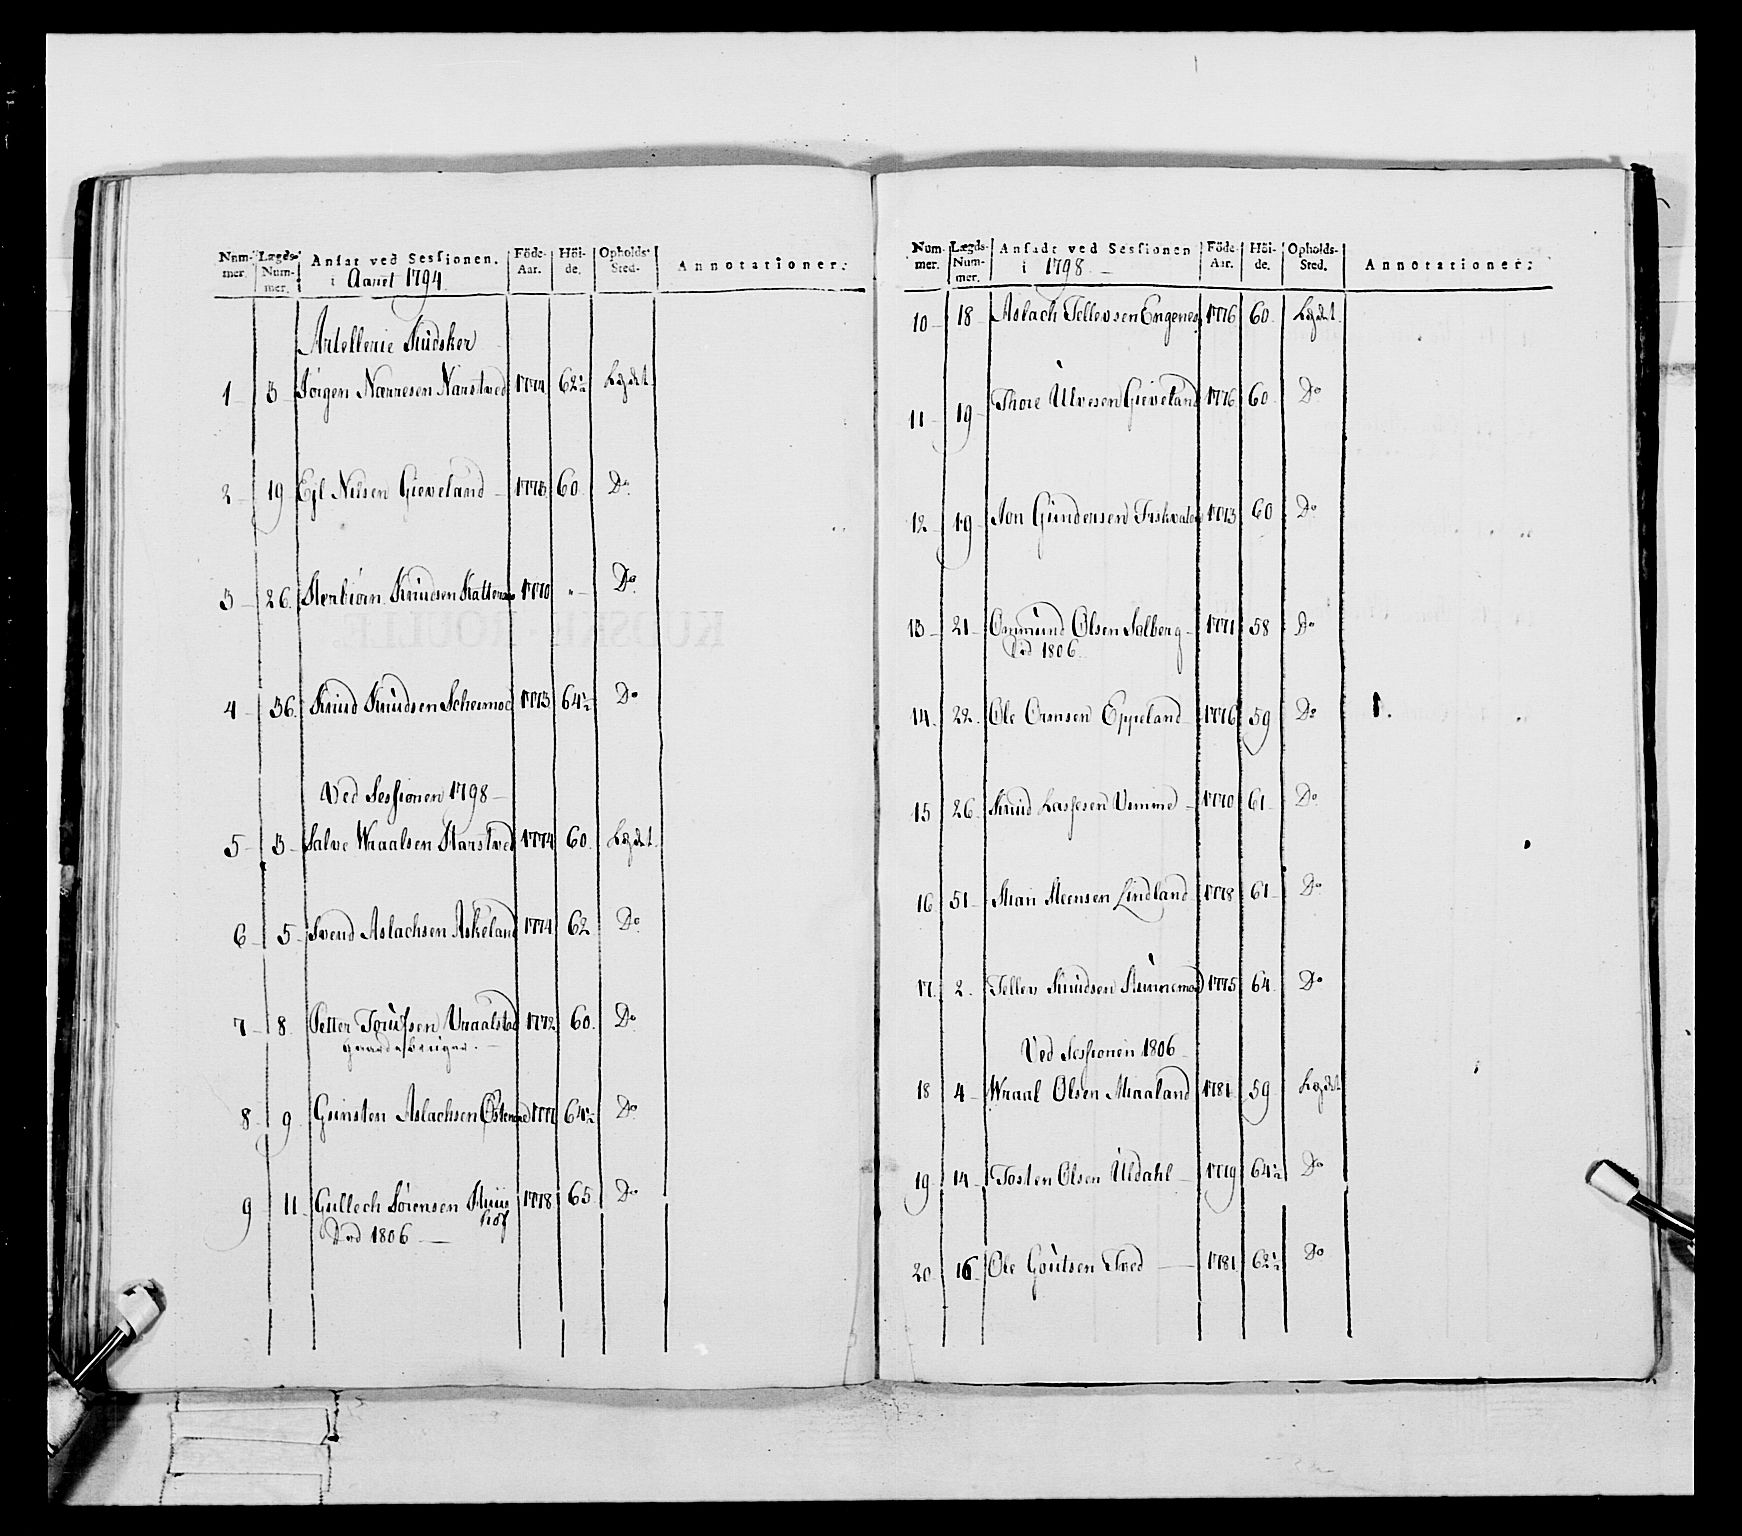 Num- Lægds- Ansat ved Sessionen. Föde- Höi- Opholds-
mer. Num- i Aaret 1794 Aar. de. Sted. Annotationer.
mer.
Artellerie Kudsker
1 3 Jörgen Narresen Narstved 1774 62½ Lægdet
2 19 Ejl Nilsen Gieveland 1775 60 Do
3 26 Knudsen 1770 " Do
4 36 Knud Knudsen 1773 64½ Do
Ved Sessionen 1798
5 3 Salve Wraalsen 1774 60 Lægdet
6 5 Svend Aslachsen Askeland 1774 62 Do
7 8 Petter Vraalstad 1772 60 Do
Gaardebruger.
8 9 Gunsten Aslachsen 64½ Do
9 11 Gullech Sörensen 1778 65 Do
Död 1806
Num- Lægds- Ansadt ved Sessionen Föde- Höi- Opholds-
mer. Num- i 1798 Aar. de. Sted. Annotationer.
mer.
10 18 Aslach Tellevsen Engenes 1776 60 Lægdet
11 19 Thore Ulvesen Gieveland 1776 60 Do
12 19 Jon Gundersen 1773 60 Do
13 21 Ommund Olsen Solberg 1771 58 Do
Död 1806
14 22 Ole Ormsen Eppeland 1776 59 Do
15 26 Knud Lassesen 1770 61 Do
16 51 Steensen Lindland 1778 61 Do
17 2 Tellev Knudsen 1775 64 Do
Ved Sessionen 1806
18 4 Wraal Olsen 1781 59 Lægdet
19 14 Tosten Olsen Uldahl 1779 64½ Do
20 16 Ole Goutsen Tved 1781 62½ Do